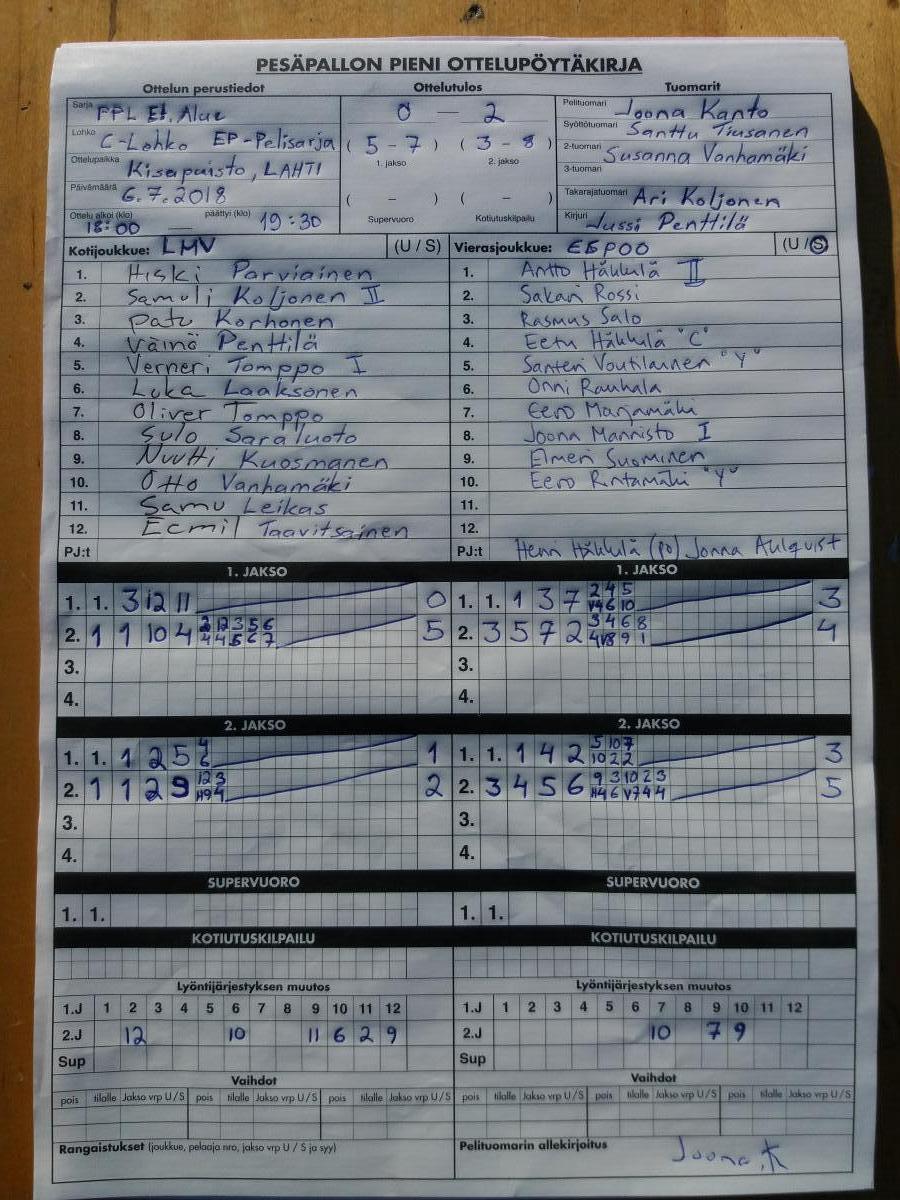 PESÄPALLON PIENI OTTELUPÖYTÄKIRJA
Ottelun perustiedot Ottelutulos Tuomarit
Sarja PPL Et. Alue
Lohko C-Lohko EP-Pelisarja
Ottelupaikka Kisapuisto, LAHTI
Päivämäärä 6.7.2018
Ottelu alkoi (klo) päättyi (klo)
18:00 — 19:30
0 — 2
( 5 - 7 ) ( 3 - 8 )
1. jakso 2. jakso
( - ) ( - )
Supervuoro Kotiutuskilpailu
Pelituomari Joona Kanto
Syöttötuomari Santtu Tiusanen
2-tuomari Susanna Vanhamäki
3-tuomari
Takarajatuomari Ari Koljonen
Kirjuri Jussi Penttilä
Kotijoukkue: LMV (U / S)
1. Hiski Parviainen
2. Samuli Koljonen II
3. Patu Korhonen
4. Väinö Penttilä
5. Verneri Tomppo I
6. Luka Laaksonen
7. Oliver Tomppo
8. Sulo Saraluoto
9. Nuutti Kuosmanen
10. Otto Vanhamäki
11. Samu Leikas
12. Eemil Taavitsainen
PJ:t
Vierasjoukkue: ESPOO (U / S)
1. Antto Häkkilä II
2. Sakari Rossi
3. Rasmus Salo
4. Eetu Häkkilä "C"
5. Santeri Voutilainen "Y"
6. Onni Rauhala
7. Eero Marjamäki
8. Joona Mannisto I
9. Elmeri Suominen
10. Eero Rintamäki "Y"
11.
12.
PJ:t Henri Häkkilä (po) Jonna Ahlqvist
1. JAKSO
1. 1. 3 12 11 0
2. 1 1 10 4 2 12 3 5 6 5
4 4 5 6 7
3.
4.
1. JAKSO
1. 1. 1 3 7 2 4 5 3
V4 6 10
2. 3 5 7 2 3 4 6 8 4
4 V8 9 1
3.
4.
2. JAKSO
1. 1. 1 2 5 4 1
6
2. 1 1 2 9 12 3 2
H9 4
3.
4.
2. JAKSO
1. 1. 1 4 2 5 10 7 3
10 2 2
2. 3 4 5 6 9 3 10 2 3 5
H4 6 V7 4 4
3.
4.
SUPERVUORO SUPERVUORO
1. 1. 1. 1.
KOTIUTUSKILPAILU KOTIUTUSKILPAILU
Lyöntijärjestyksen muutos
1.J 1 2 3 4 5 6 7 8 9 10 11 12
2.J 12 10 11 6 2 9
Sup
Lyöntijärjestyksen muutos
1.J 1 2 3 4 5 6 7 8 9 10 11 12
2.J 10 7 9
Sup
Vaihdot Vaihdot
pois tilalle Jakso vrp U/S pois tilalle Jakso vrp U/S pois tilalle Jakso vrp U/S
pois tilalle Jakso vrp U/S pois tilalle Jakso vrp U/S pois tilalle Jakso vrp U/S
Rangaistukset (joukkue, pelaaja nro, jakso vrp U / S ja syy)
Pelituomarin allekirjoitus Joona K